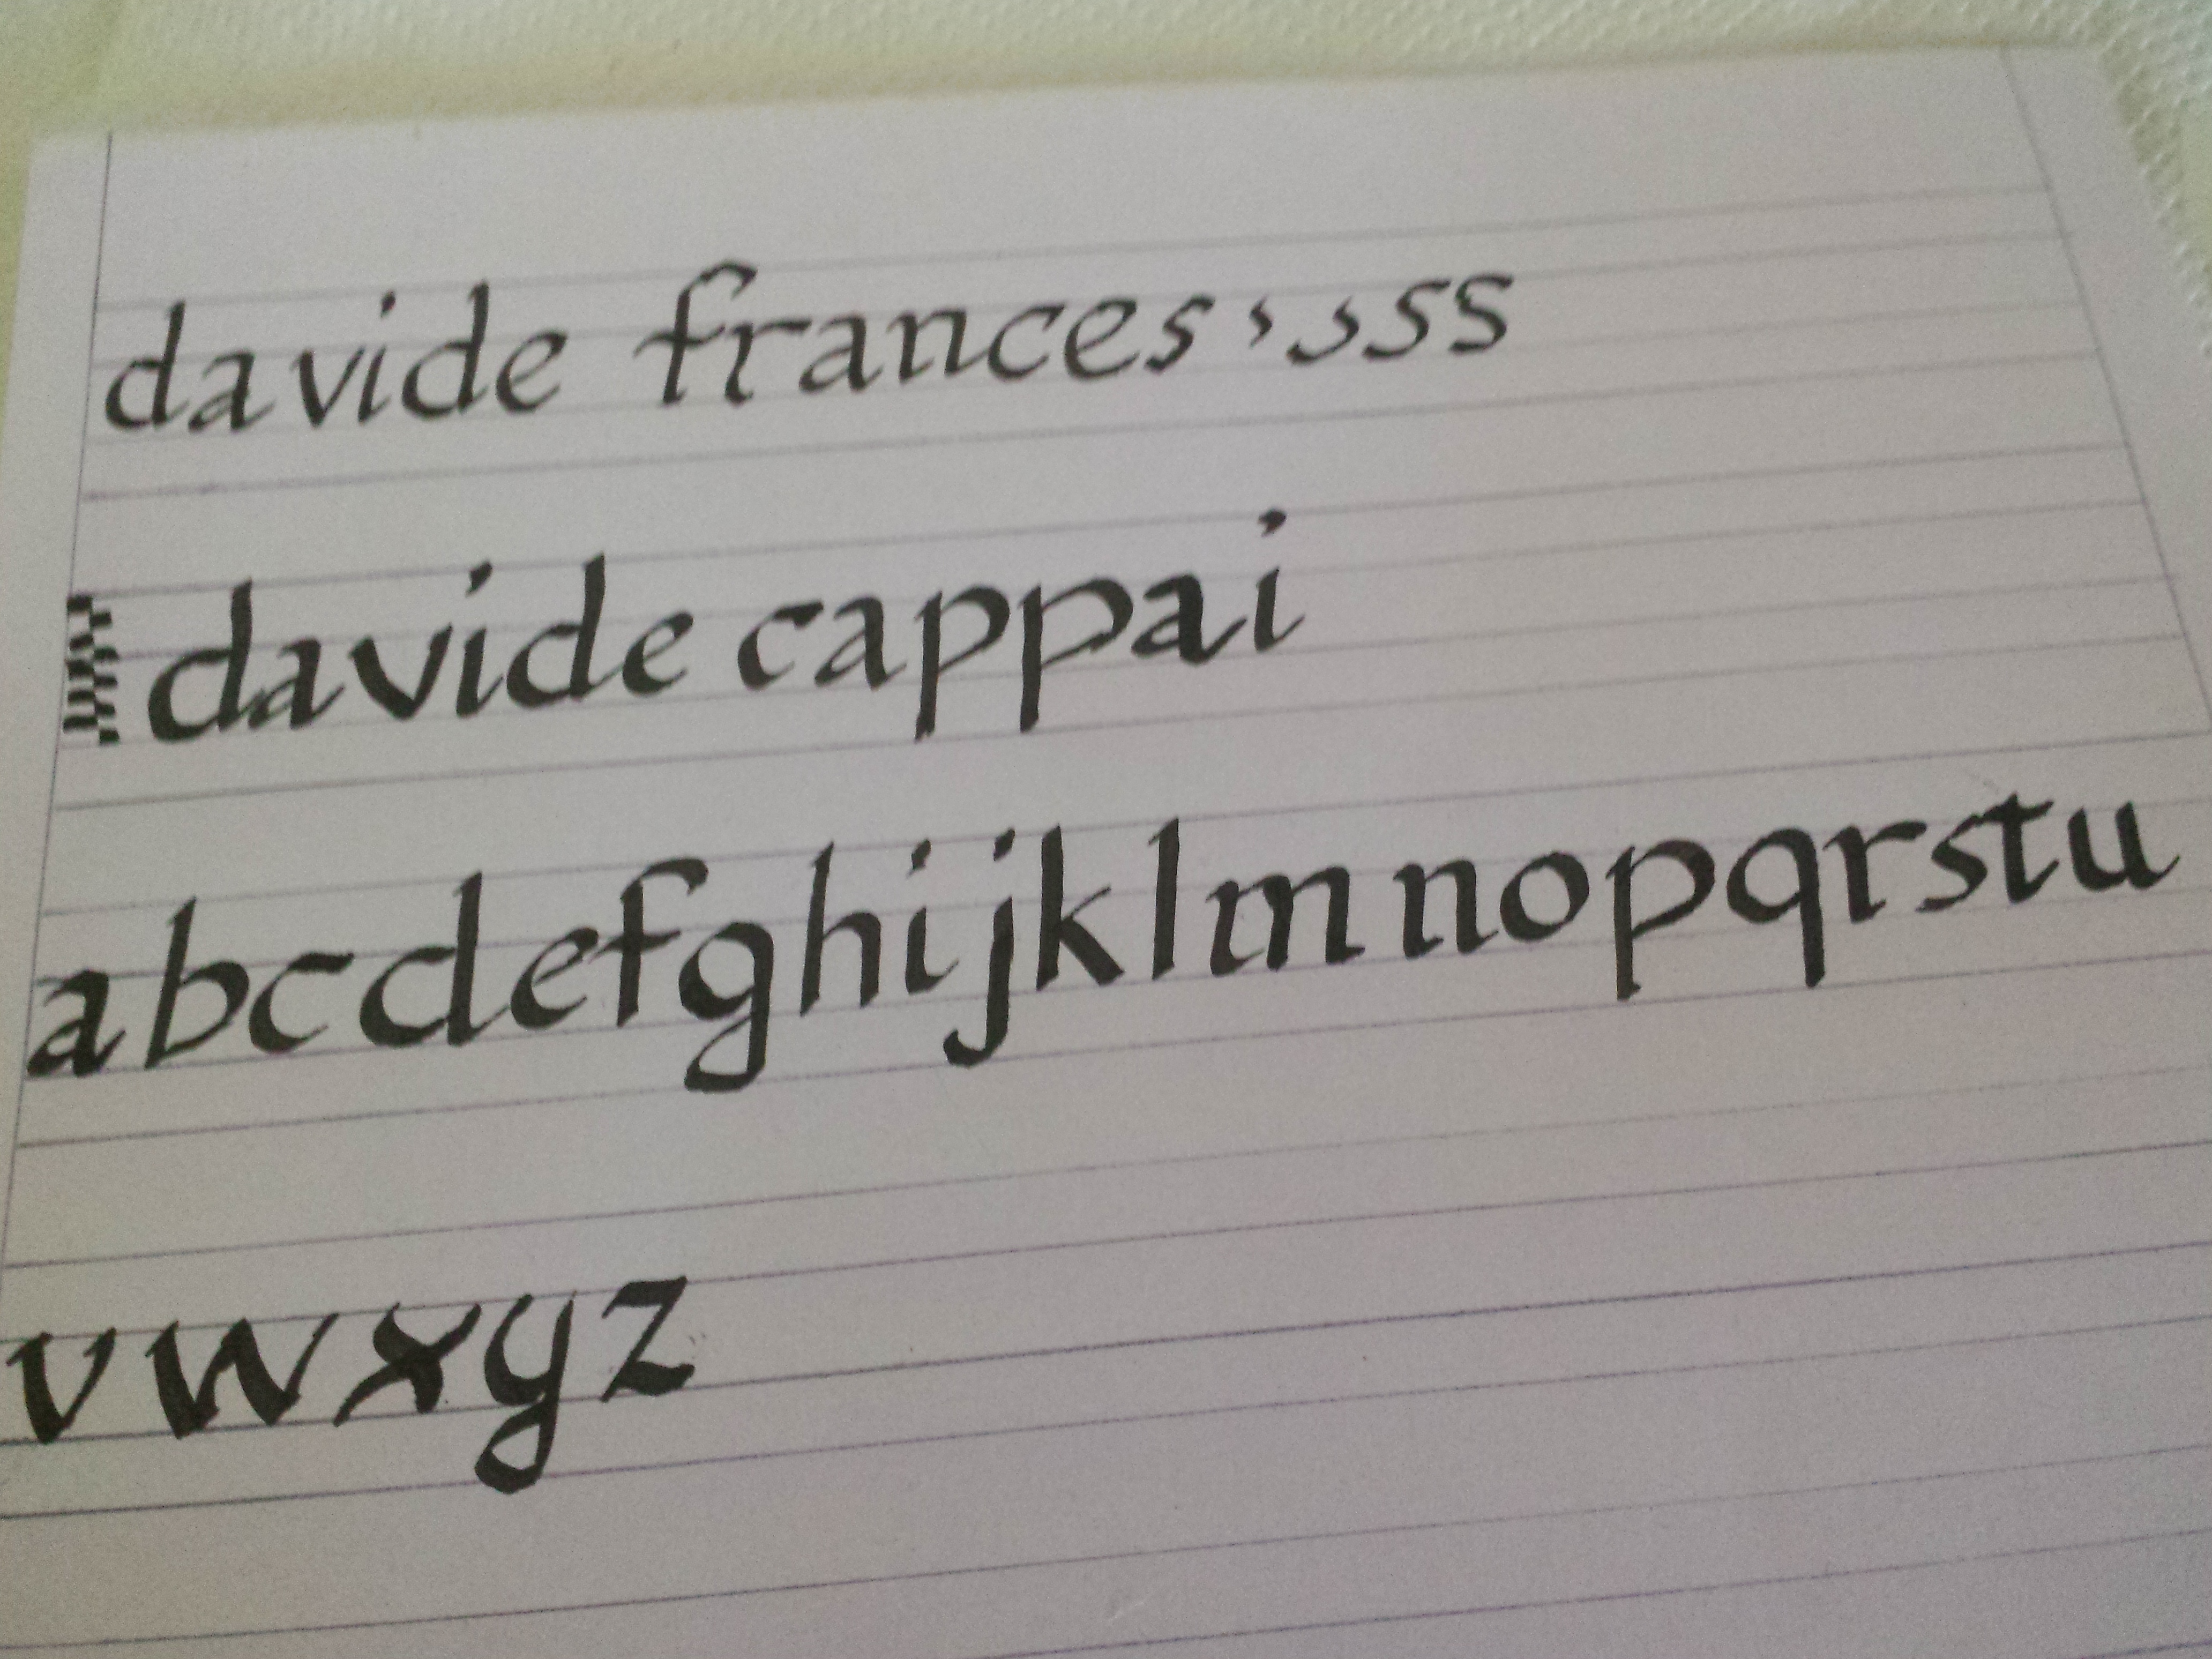 davide frances ss
davide cappai
abcdefghijklmnopqrstu
vwxyz